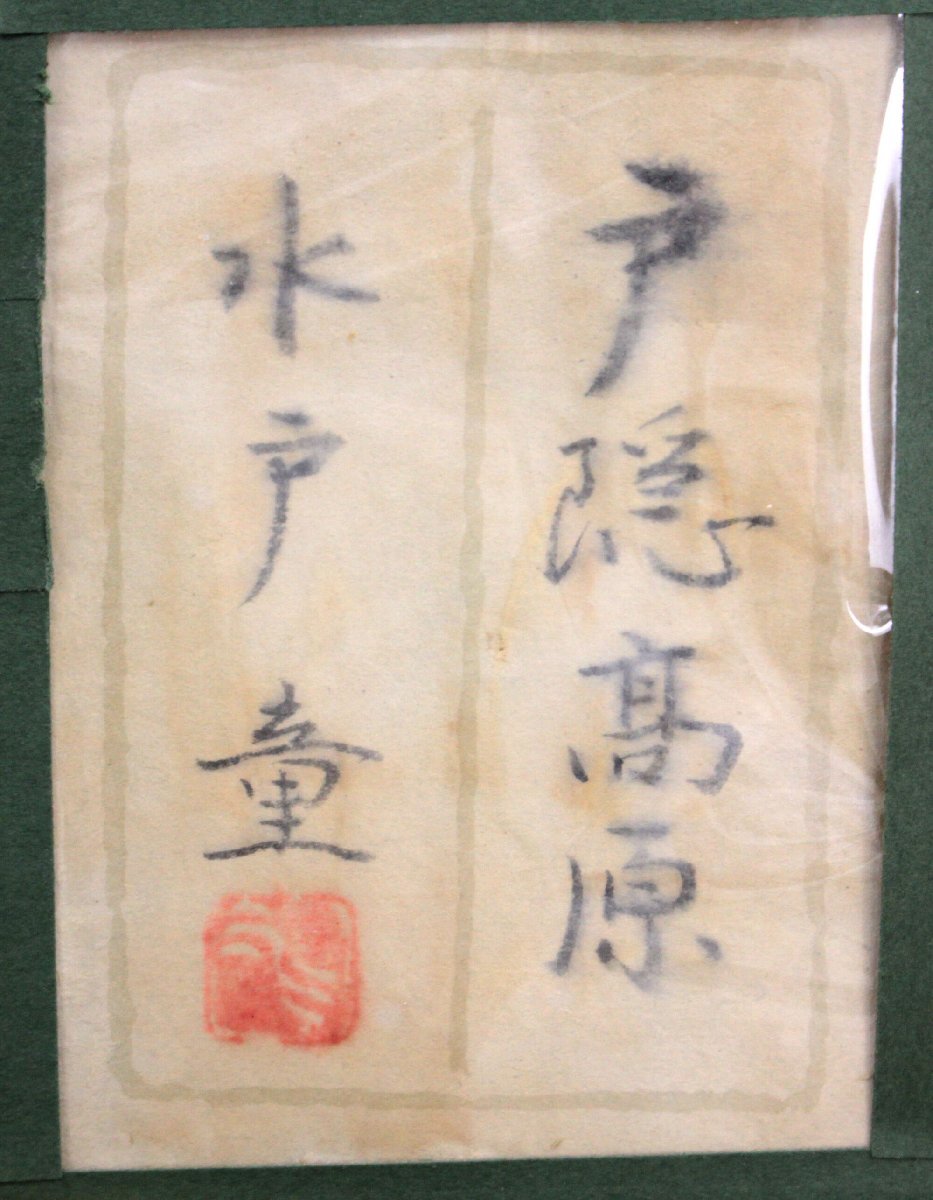 戸隠髙原
水戸童